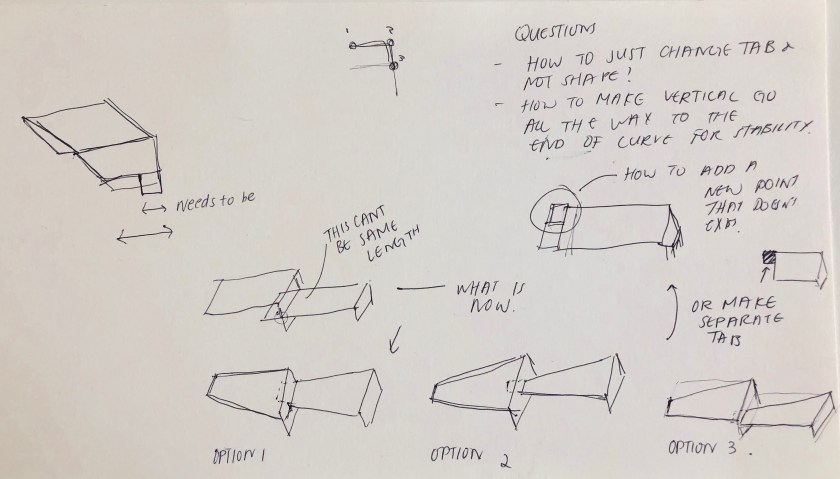 1 2
3
QUESTIONS
- HOW TO JUST CHANGE TAB &
NOT SHAPE!
- HOW TO MAKE VERTICAL GO
ALL THE WAY TO THE
END OF CURVE FOR STABILITY.
HOW TO ADD A
NEW POINT
THAT DOESN'T
EXIST.
Needs to be
THIS CANT
BE SAME
LENGTH
WHAT IS
NOW.
OR MAKE
SEPARATE
TAB
OPTION 1
OPTION 2
OPTION 3.